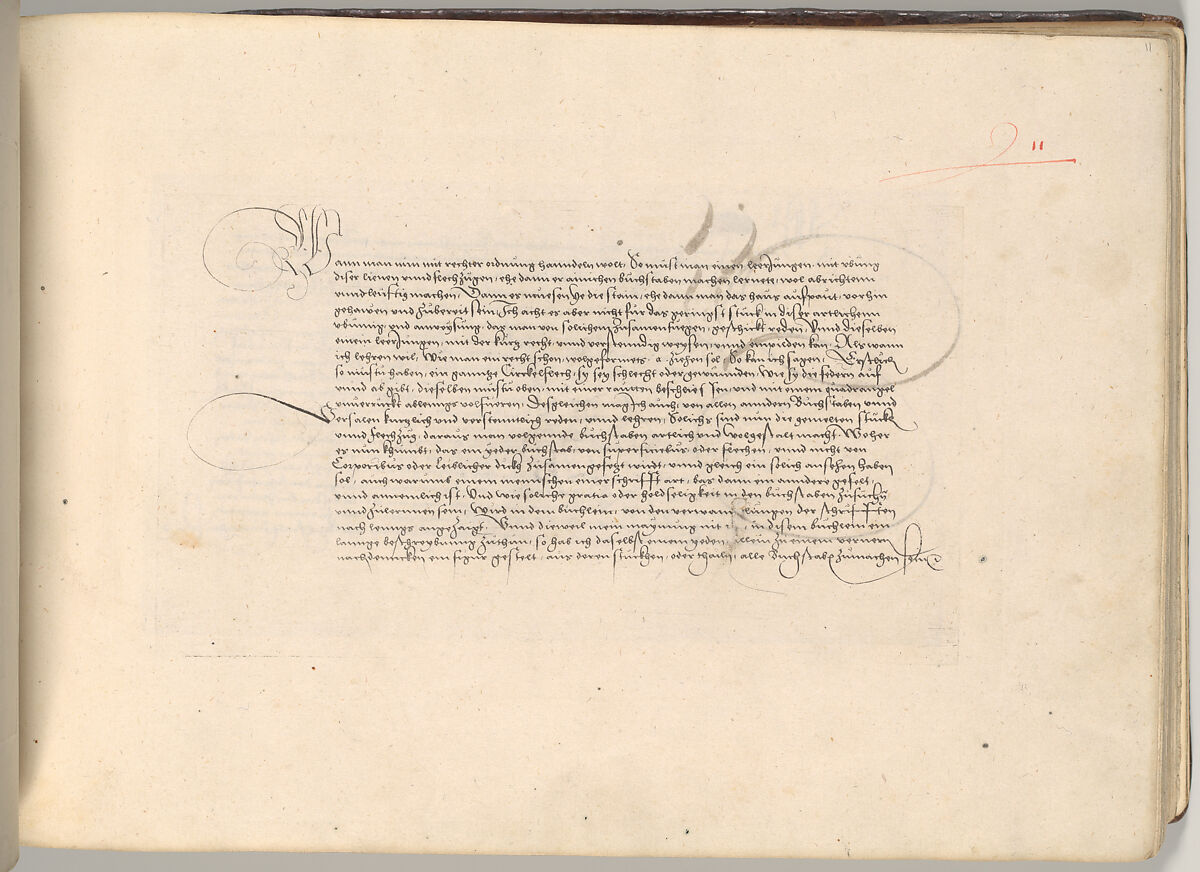 11
11
Wann man nun mit rechter ordnung hanndeln wolt, So müst man einen leerJungen, mit vbung
diser lienen vnnd flechzügen, ehe dann er ainichen büchstaben machen lernete, wol abrichtenn
vnnd leüftig machen, Dann er müesen ye die stain, ehe dann man das haus aufpaut, vorhin
gehawen vnd zübereit sein, Ich acht es aber nicht für das geringst stück in diser artlichenn
vbüng, vnd anweysüng, das man von solichen züsamenfüegen, geschickt reden, Vnnd dieselben
einem leerJungen, mit der kürtz recht, vnnd verstenndig weysen, vnnd einpilden kan, Als wann
ich lehren wil, Wie man ein recht schon, wolgeformets, a, ziehen sol, So kan ich sagen, Erstlich
so müstu haben, ein ganntze Circkelflech, sy sey schlecht oder gewünnden, Wie sy die federn auf
vnnd ab gibt, dieselben müstu oben, mit einer raütten beschliessen, vnd mit einem quadrangel
vnuerrückt ablenngs volfüeren, Desgleichen mag Ich aüch, von allen anndern Büchstaben vnnd
Versalen kurtzlich vnd verstenntlich reden, vnnd lehren, Solichs sind nün die gemelten stückh
vnnd flechzüg, daraus man volgennde büchstaben artlich vnd wolgestalt macht, Woher
es nün khümbt, das ein yeder büchstab, von superficiebus, oder flechen, vnnd nicht von
Corporibüs oder leiblicher dickh züsamengesetzt wirdt, vnnd gleich ein solich ansehen haben
sol, auch warumb einem menschen einer schrifft art, bas dann ein anndere gefelt
vnnd annemlich ist, Vnd wie soliche gratia oder holdseligkeit in den büchstaben züsüchen
vnnd zülernnen sein, Wird in dem büchlein, von den verwanndlüngen der schrifften
nach lenngs angezaigt, Vnnd dieweil mein maynüng nit ist, in disem büchlein ein
lannge beschreybüng zuthun, so hab ich daselbst einem yeden, allein zü einem vernern
nachdenncken ein figur gestelt, aus deren stückhen, oder thailn, alle büchstaben zümachen sein